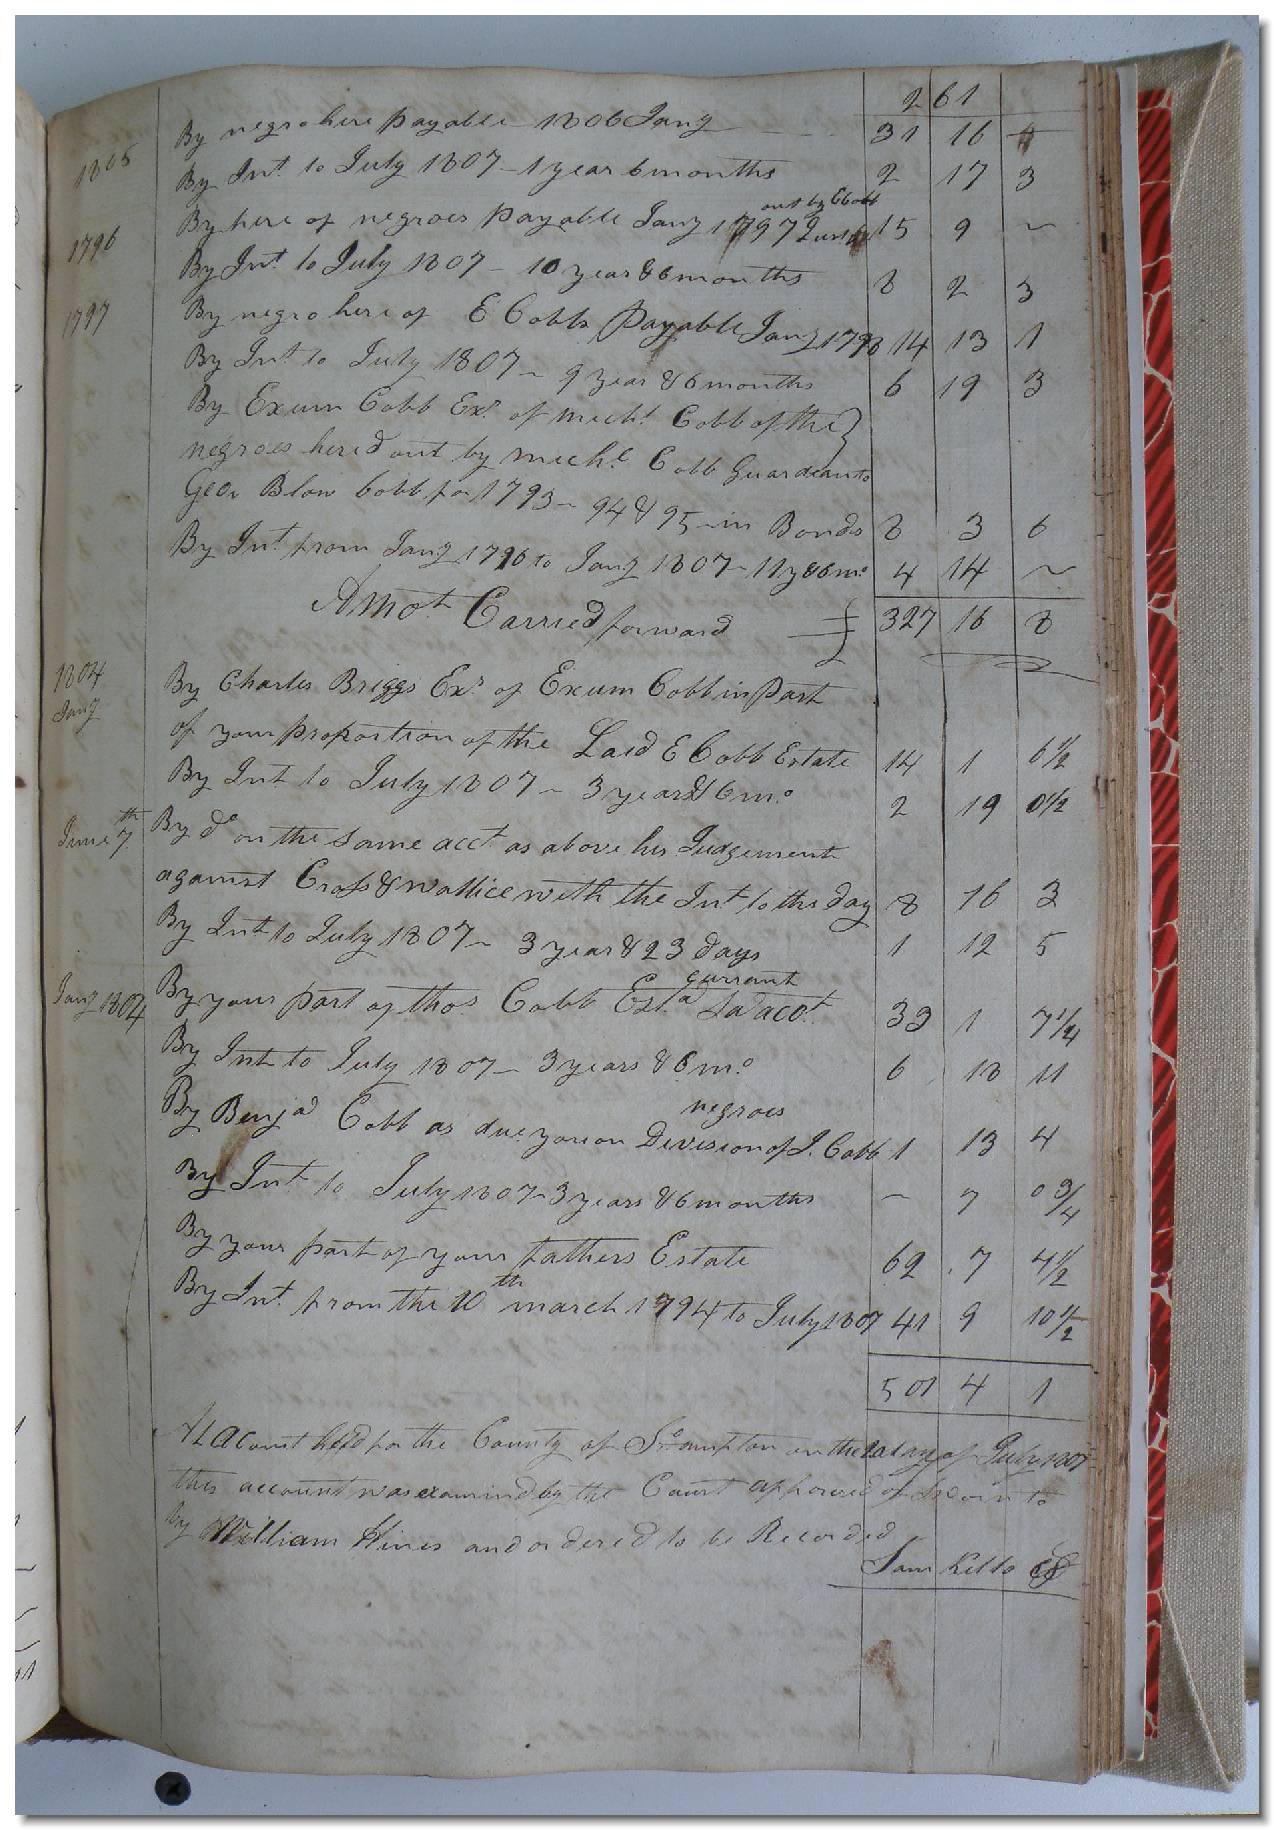 261
1805 By negro here payable 1806 Jany 31 16 4
By Int. to July 1807 - 1 year 6 months 2 17 3
out by E Cobb
1796 By here of negroes payable Jany 1797 15 9 ~
By Int. to July 1807 - 10 year & 6 months 8 2 3
1797 By negro here of E Cobb payable Jany 1798 14 13 1
By Int. to July 1807 ~ 9 year & 6 months 6 19 3
By Exum Cobb Exr. of Michl. Cobb of the
negroes hered out by Michl. Cobb Guardean to
Geor Blow Cobb for 1793 - 94 & 95 - in Bonds 8 3 6
By Int. from Jany 1796 to Jany 1807 - 11 y & 6 mo. 4 14 ~
Amot. Carried forward 327 16 8
1804
Jany By Charles Briggs Exr. of Exum Cobb in Part
of your proportion of the Said E Cobb Estate 14 1 6 1/2
By Int. to July 1807 ~ 3 years & 6 mo. 2 19 0 1/2
June 7th By do. on the same acct. as above his Judgement
against Cross & Wallice with the Int. to ths day 8 16 3
By Int. to July 1807 ~ 3 year & 23 days 1 12 5
currant
Jany 1804 By your part of Thos. Cobb Esta. acot. 33 1 7 1/4
By Int to July 1807 ~ 3 years & 6 mo. 6 18 11
negroes
By Benja. Cobb as due you on Devision of J. Cobb 1 13 4
By Int. to July 1807 ~ 3 years & 6 months ~ 7 0 3/4
By your part of your fathers Estate 62 7 4 1/2
By Int. from the 10th march 1794 to July 1807 41 9 10 1/2
501 4 1
At a Court held for the County of So.ampton on the day of July 1807
this account was examind by the Court approved of Sworn to
by William Hines and ordered to be Recorded
Sam Kello CC